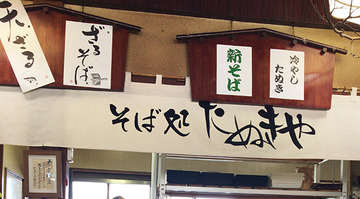 天ざる
ざるそば
新そば
冷やし
たぬき
そば処 たぬきや